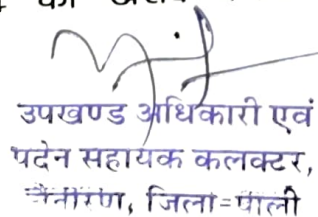 उपखण्ड अधिकारी एवं
पदेन सहायक कलक्टर,
जिला=पाली